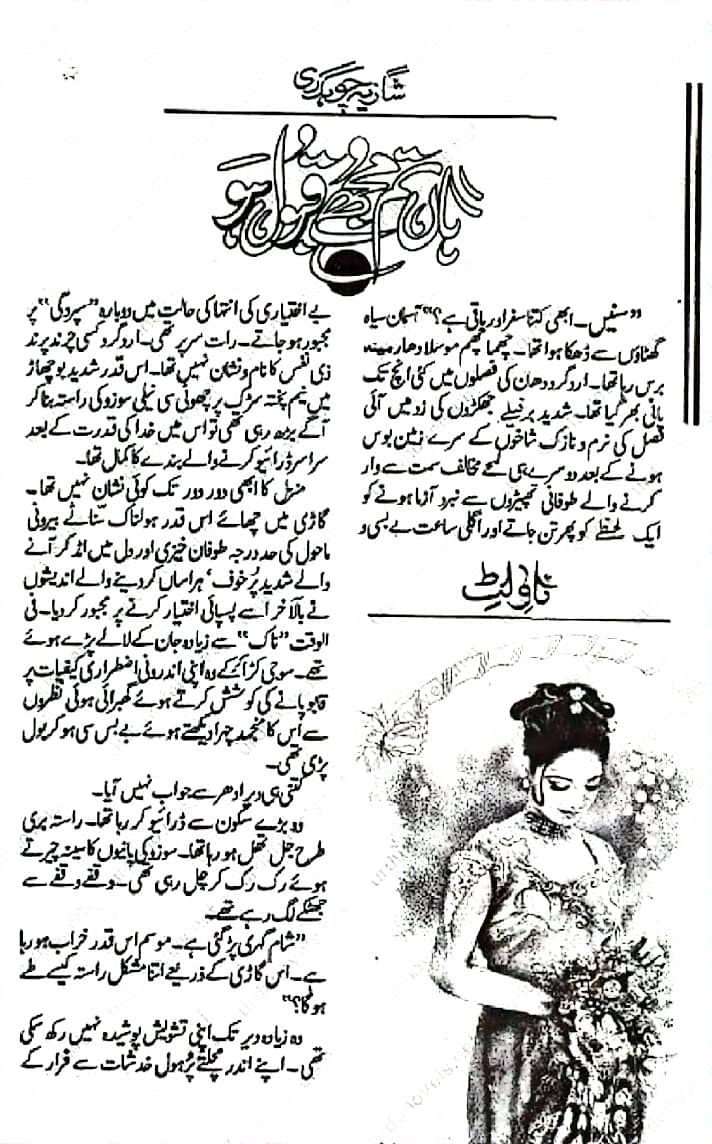 شازیہ چوہدری
ہاں تم مجھے قبول ہو
”سنیں۔ ابھی کتنا سفر اور باقی ہے؟“ آسمان سیاہ
گھٹاؤں سے ڈھکا ہوا تھا۔ چھما چھم موسلا دھار مینہ
برس رہا تھا۔ ارد گرد دھان کی فصلوں میں کئی انچ تک
پانی بھر گیا تھا۔ شدید برفیلے جھکڑوں کی زد میں آئی
فصل کی نرم و نازک شاخوں کے سرے زمین بوس
ہونے کے بعد دوسرے ہی لمحے مخالف سمت سے وار
کرنے والے طوفانی تھپیڑوں سے نبرد آزما ہونے کو
ایک لحظے کو پھر تن جاتے اور اگلی ساعت بے بسی و
ناولٹ
بے اختیاری کی انتہا کی حالت میں دوبارہ ”سپردگی“ پر
مجبور ہو جاتے۔ رات سر پر تھی۔ ارد گرد کسی چرند پرند
ذی نفس کا نام و نشان نہیں تھا۔ اس قدر شدید بوچھاڑ
میں نیم پختہ سڑک پر چھوٹی سی نیلی سوزوکی راستہ بنا کر
آگے بڑھ رہی تھی تو اس میں خدا کی قدرت کے بعد
سراسر ڈرائیو کرنے والے بندے کا کمال تھا۔
منزل کا ابھی دور دور تک کوئی نشان نہیں تھا۔
گاڑی میں چھائے اس قدر ہولناک سناٹے بیرونی
ماحول کی حد درجہ طوفان خیزی اور دل میں امڈ کر آنے
والے شدید پُر خوف‘ ہراساں کر دینے والے اندیشوں
نے بالآخر اسے پسپائی اختیار کرنے پر مجبور کر دیا۔ فی
الوقت ”ناک“ سے زیادہ جان کے لالے پڑے ہوئے
تھے۔ سو جی کڑا کر کے وہ اپنی اندرونی اضطراری کیفیات پر
قابو پانے کی کوشش کرتے ہوئے گھبرائی ہوئی نظروں
سے اس کا منجمد چہرا دیکھتے ہوئے بے بس سی ہو کر بول
پڑی تھی۔
کتنی ہی دیر ادھر سے جواب نہیں آیا۔
وہ بڑے سکون سے ڈرائیو کر رہا تھا۔ راستہ بری
طرح جل تھل ہو رہا تھا۔ سوزوکی پانیوں کا سینہ چیرتے
ہوئے رک رک کر چل رہی تھی۔ وقفے وقفے سے
جھٹکے لگ رہے تھے۔
”شام گہری پڑ گئی ہے۔ موسم اس قدر خراب ہو رہا
ہے۔ اس گاڑی کے ذریعے اتنا مشکل راستہ کیسے طے
ہو گا؟“
وہ زیادہ دیر تک اپنی تشویش پوشیدہ نہیں رکھ سکی
تھی۔ اپنے اندر مچلتے پُرہول خدشات سے فرار کے